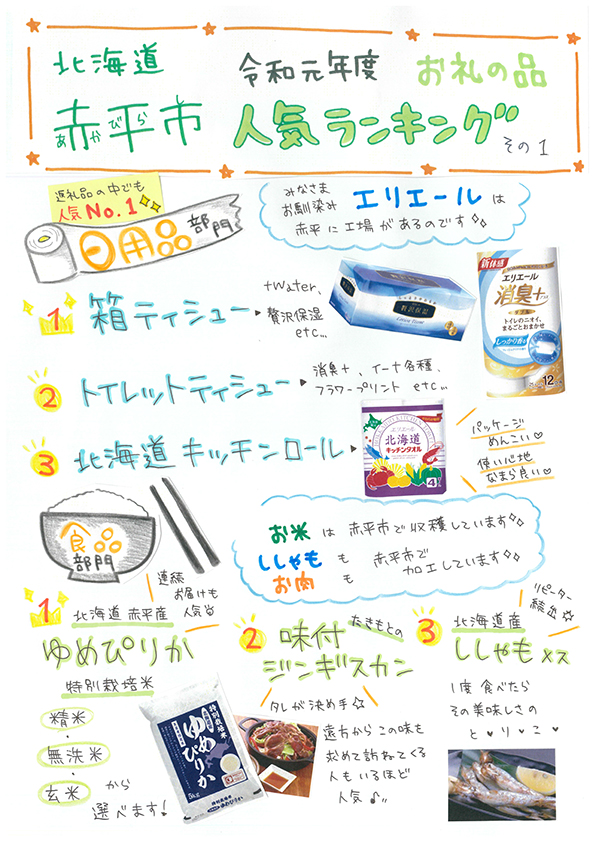 北海道
令和元年度 お礼の品
赤平市 人気ランキング その1
あかびら
返礼品の中でも
人気No.1
日用品部門
みなさま
お馴染み エリエールは
赤平に工場があるのです
1 箱ティシュー
+Water、
贅沢保湿
etc...
贅沢保湿
新体感
エリエール
消臭+
ダブル
トイレのニオイ、
まるごとおまかせ
しっかり香る
12
2 トイレットティシュー
消臭+、イーナ各種、
フラワープリント etc...
3 北海道キッチンロール
エリエール
北海道
キッチンタオル
4
パッケージ
めんこい♡
使い心地
なまら良い♡
食品
部門
お米は赤平市で収穫しています
ししゃもも 赤平市で
お肉も 加工しています
連続
お届けも
人気
1 北海道 赤平産
ゆめぴりか
特別栽培米
精米
・
無洗米
・
玄米 から
選べます!
特別栽培米
ゆめぴりか
5kg
2 味付 たきもとの
ジンギスカン
タレが決め手☆
遠方からこの味も
求めて訪ねてくる
人もいるほど
人気♪
リピーター
続出☆
3 北海道産
ししゃもメス
1度食べたら
その美味しさの
と♥り♥こ♥